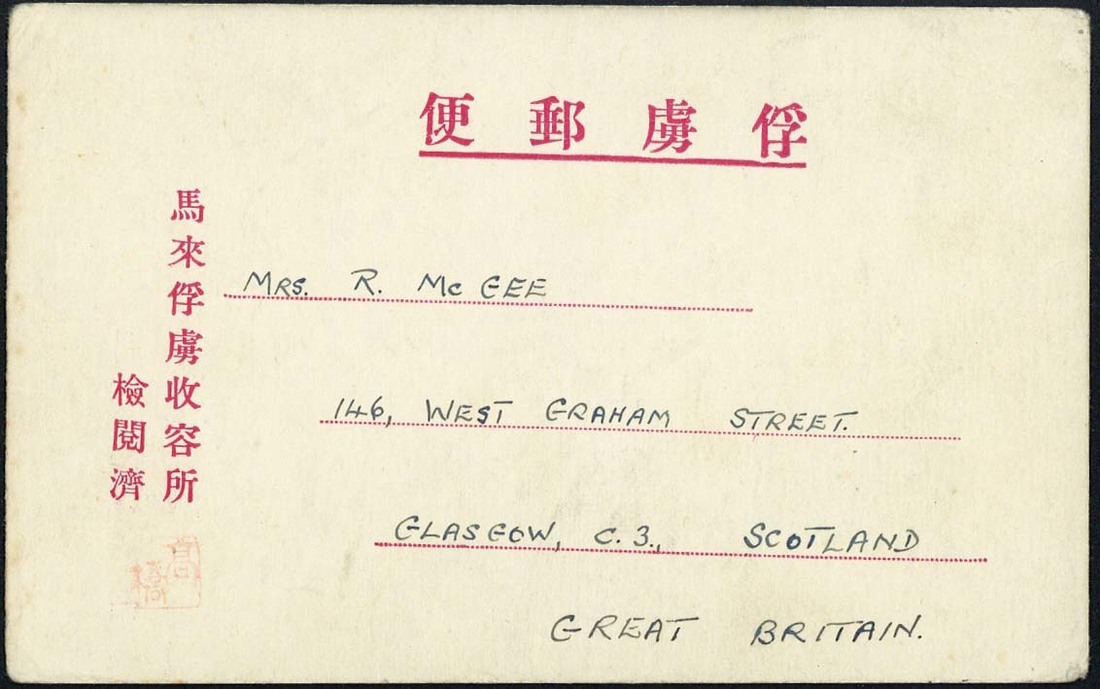 俘虜郵便
馬來俘虜收容所
檢閱濟
高橋
MRS. R. McGEE
146, WEST GRAHAM STREET.
GLASGOW, C.3., SCOTLAND
GREAT BRITAIN.